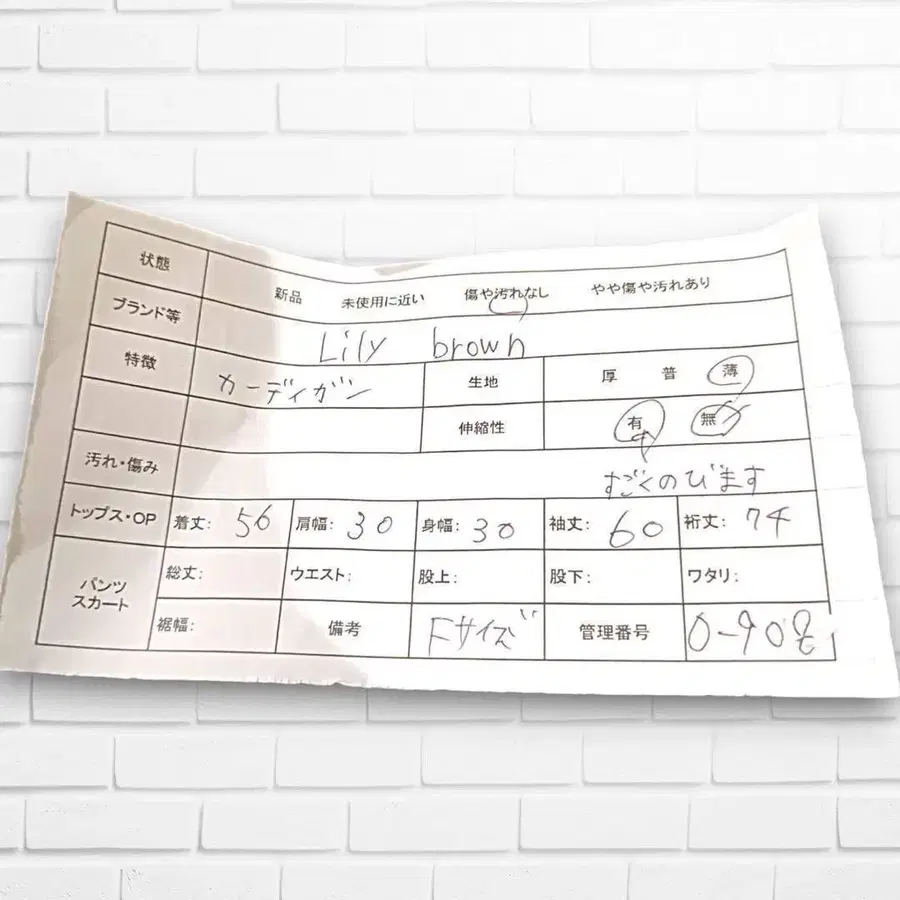 状態 新品 未使用に近い 傷や汚れなし やや傷や汚れあり
ブランド等 Lily brown
特徴 カーディガン 生地 厚 普 薄
伸縮性 有 無
汚れ・傷み すごくのびます
トップス・OP 着丈: 56 肩幅: 30 身幅: 30 袖丈: 60 裄丈: 74
パンツ スカート 総丈: ウエスト: 股上: 股下: ワタリ:
裾幅: 備考 Fサイズ 管理番号